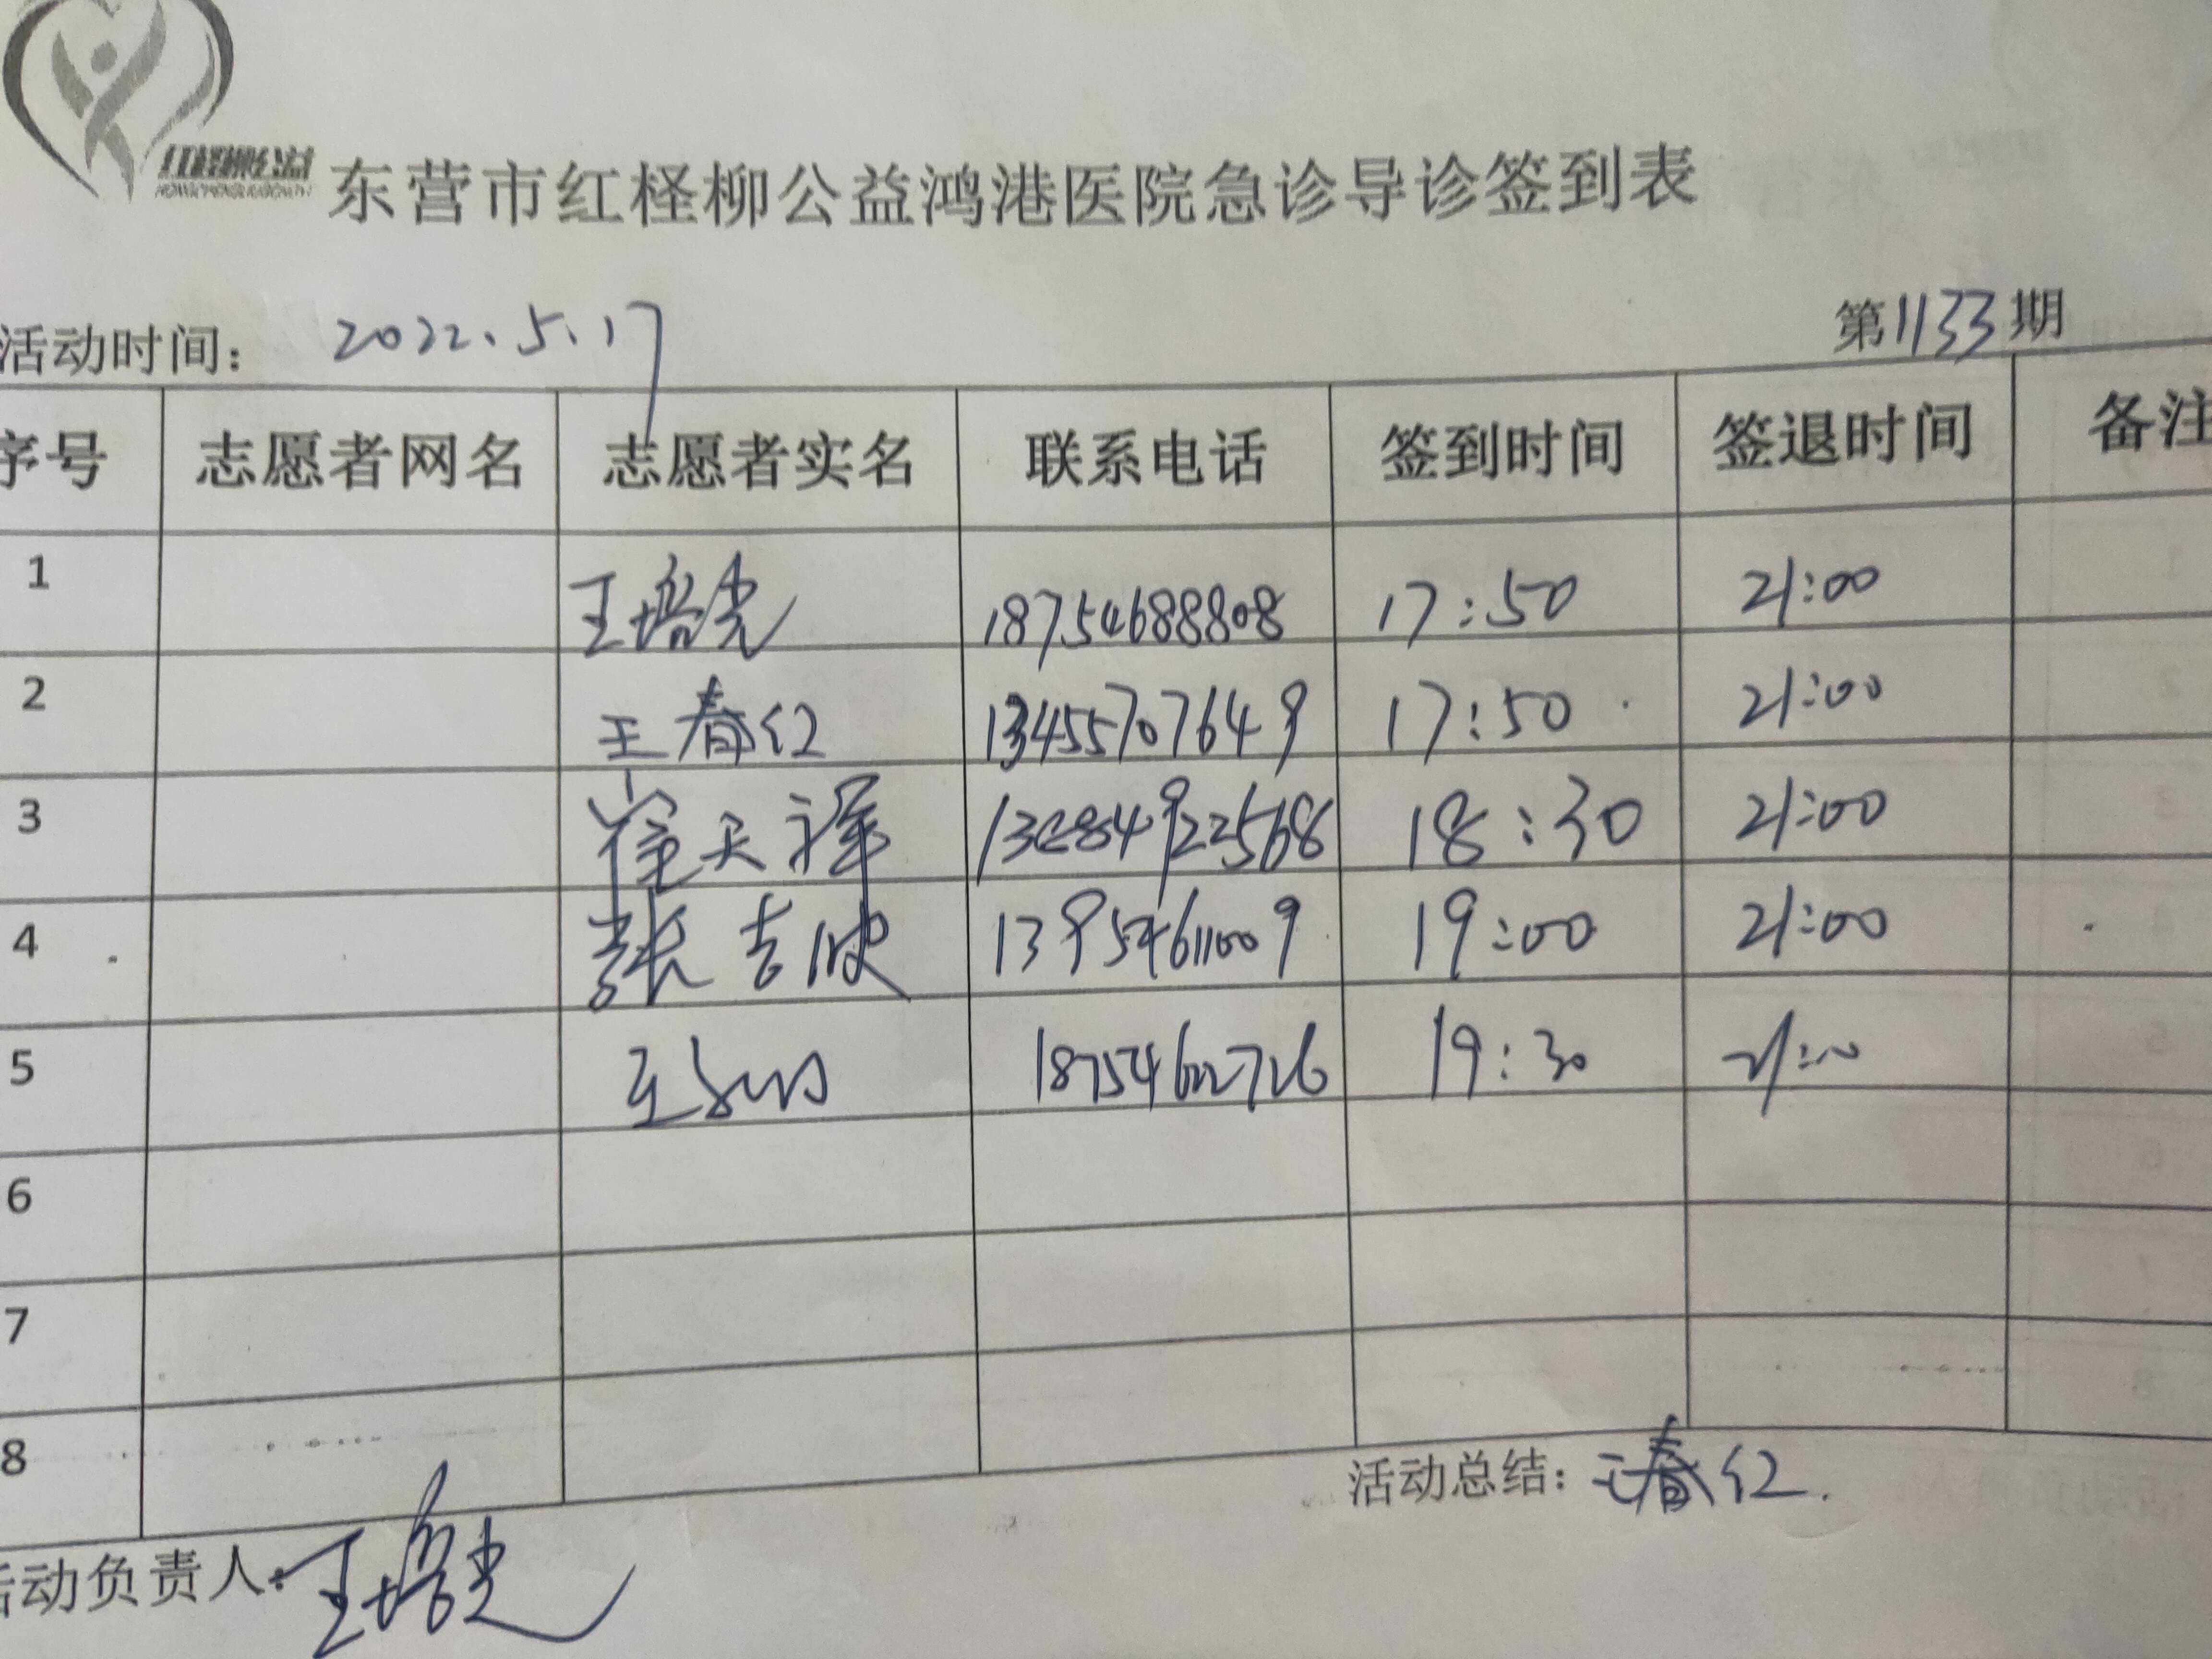 红柽柳公益
东营市红柽柳公益鸿港医院急诊导诊签到表
活动时间： 2022.5.17 第1133期
序号 志愿者网名 志愿者实名 联系电话 签到时间 签退时间 备注
1 王培光 18754688808 17:50 21:00
2 王春红 13455707649 17:50 21:00
3 崔天祥 18:30 21:00
4 张吉波 13954611009 19:00 21:00
5 王 18754622726 19:30 21:00
6
7
8
活动总结：王春红.
活动负责人：王培光